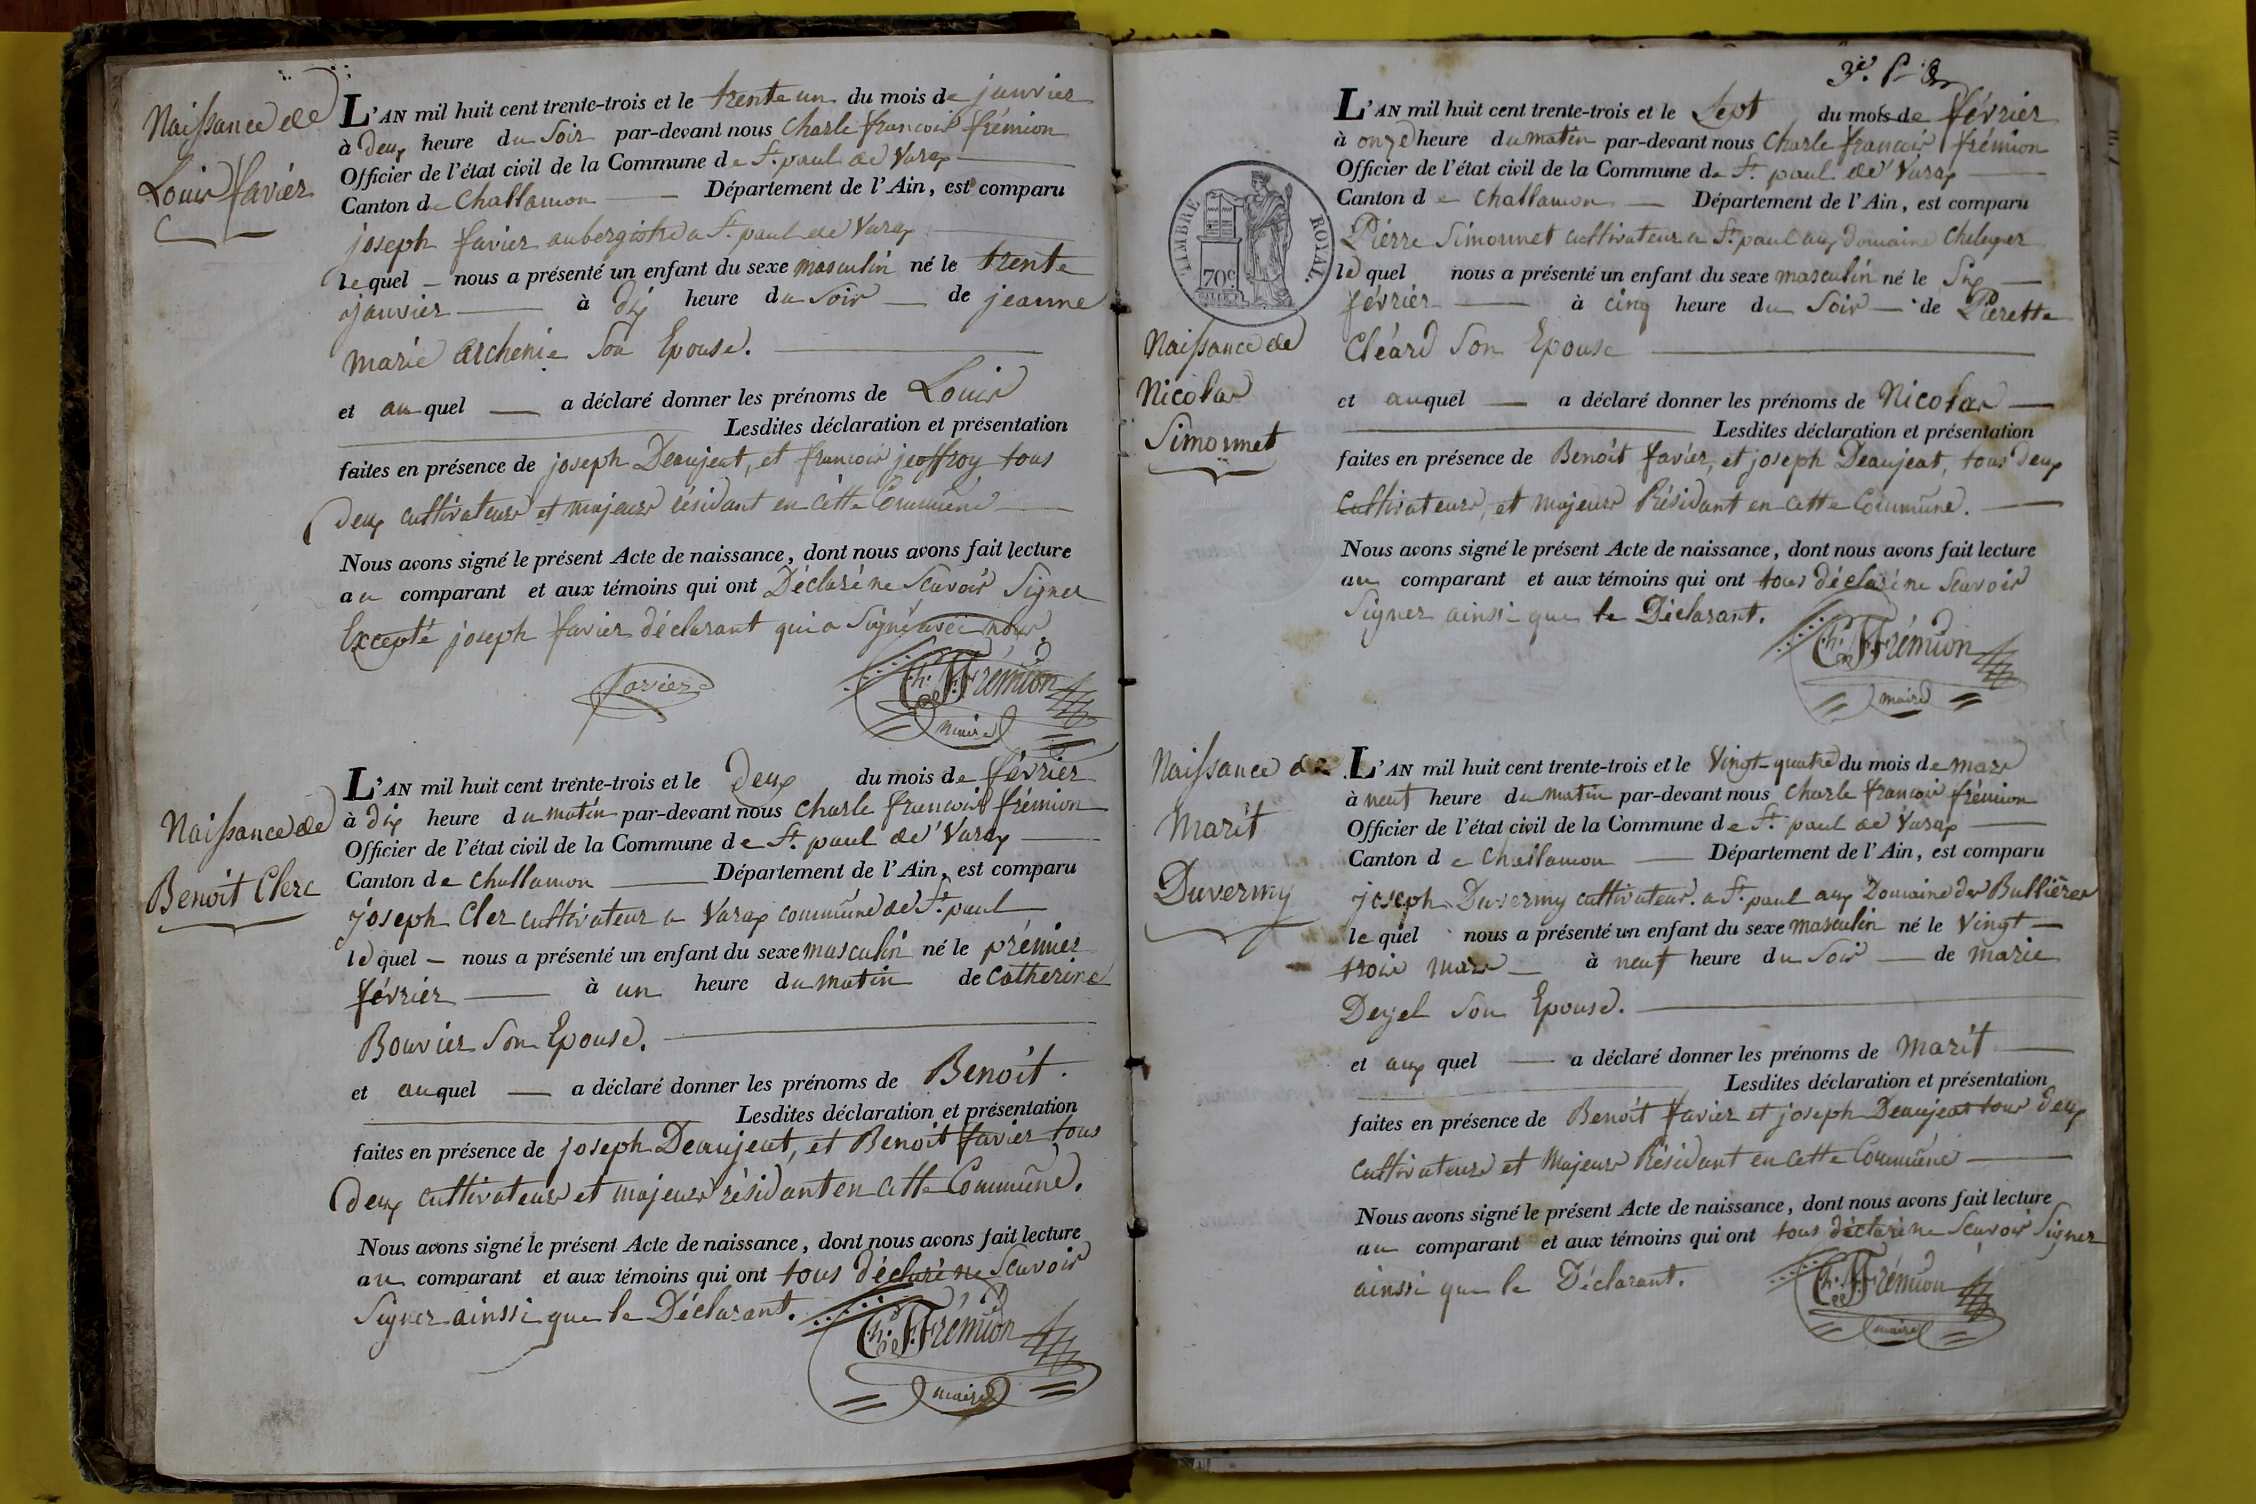 Naissance de
Louis favier
L'AN mil huit cent trente-trois et le trente un du mois de janvier
à deux heure du Soir par-devant nous Charle francois frémion
Officier de l'état civil de la Commune de St. paul de Varax
Canton de Challamon Département de l'Ain, est comparu
joseph favier aubergiste a St. paul de Varax
lequel nous a présenté un enfant du sexe masculin né le trente
janvier à dix heure du Soir de jeanne
marie archenie Son Epouse.
et auquel a déclaré donner les prénoms de Louis
Lesdites déclaration et présentation
faites en présence de joseph Deaujeat, et francois jeoffroy tous
deux cultivateurs et majeurs résidant en cette Commune
Nous avons signé le présent Acte de naissance, dont nous avons fait lecture
au comparant et aux témoins qui ont Déclaré ne Scavoir Signer
Excepté joseph favier déclarant qui a Signé avec nous.
favier
Ch. F. Frémion
maire
Naissance de
Benoit Clerc
L'AN mil huit cent trente-trois et le deux du mois de février
à dix heure du matin par-devant nous Charle francois frémion
Officier de l'état civil de la Commune de St. paul de Varax
Canton de Challamon Département de l'Ain, est comparu
joseph Cler cultivateur a Varax commune de St. paul
lequel nous a présenté un enfant du sexe masculin né le premier
février à un heure du matin de Catherine
Bouvier Son Epouse.
et auquel a déclaré donner les prénoms de Benoit.
Lesdites déclaration et présentation
faites en présence de joseph Deaujeat, et Benoit favier tous
deux cultivateurs et majeurs résidant en cette Commune.
Nous avons signé le présent Acte de naissance, dont nous avons fait lecture
au comparant et aux témoins qui ont tous déclaré ne Scavoir
Signer ainssi que le Déclarant.
Ch. F. Frémion
maire
TIMBRE ROYAL.
70c
Naissance de
Nicolas
Simonnet
L'AN mil huit cent trente-trois et le Sept du mois de février
à onze heure du matin par-devant nous Charle francois frémion
Officier de l'état civil de la Commune de St. paul de Varax
Canton de Challamon Département de l'Ain, est comparu
Pierre Simonnet cultivateur a St. paul aux domaine
lequel nous a présenté un enfant du sexe masculin né le Six
février à cinq heure du Soir de Pierette
Cléard Son Epouse
et auquel a déclaré donner les prénoms de Nicolas
Lesdites déclaration et présentation
faites en présence de Benoit favier, et joseph Deaujeat, tous deux
Cultivateurs, et majeurs Résidant en cette Commune.
Nous avons signé le présent Acte de naissance, dont nous avons fait lecture
au comparant et aux témoins qui ont tous déclaré ne Scavoir
Signer ainssi que le Déclarant.
Ch. F. Frémion
maire
Naissance de
Marit
Duvermy
L'AN mil huit cent trente-trois et le Vingt-quatre du mois de mars
à neuf heure du matin par-devant nous Charle francois frémion
Officier de l'état civil de la Commune de St. paul de Varax
Canton de Challamon Département de l'Ain, est comparu
joseph Duvermy cultivateur a St. paul aux Domaine des Bullières
lequel nous a présenté un enfant du sexe masculin né le Vingt
trois mars à neuf heure du Soir de marie
Deyel Son Epouse.
et aux quel a déclaré donner les prénoms de Marit
Lesdites déclaration et présentation
faites en présence de Benoit favier et joseph Deaujeat tous deux
Cultivateurs et Majeurs Résidant en cette Commune
Nous avons signé le présent Acte de naissance, dont nous avons fait lecture
au comparant et aux témoins qui ont tous déclaré ne Scavoir Signer
ainssi que le Déclarant.
Ch. F. Frémion
maire